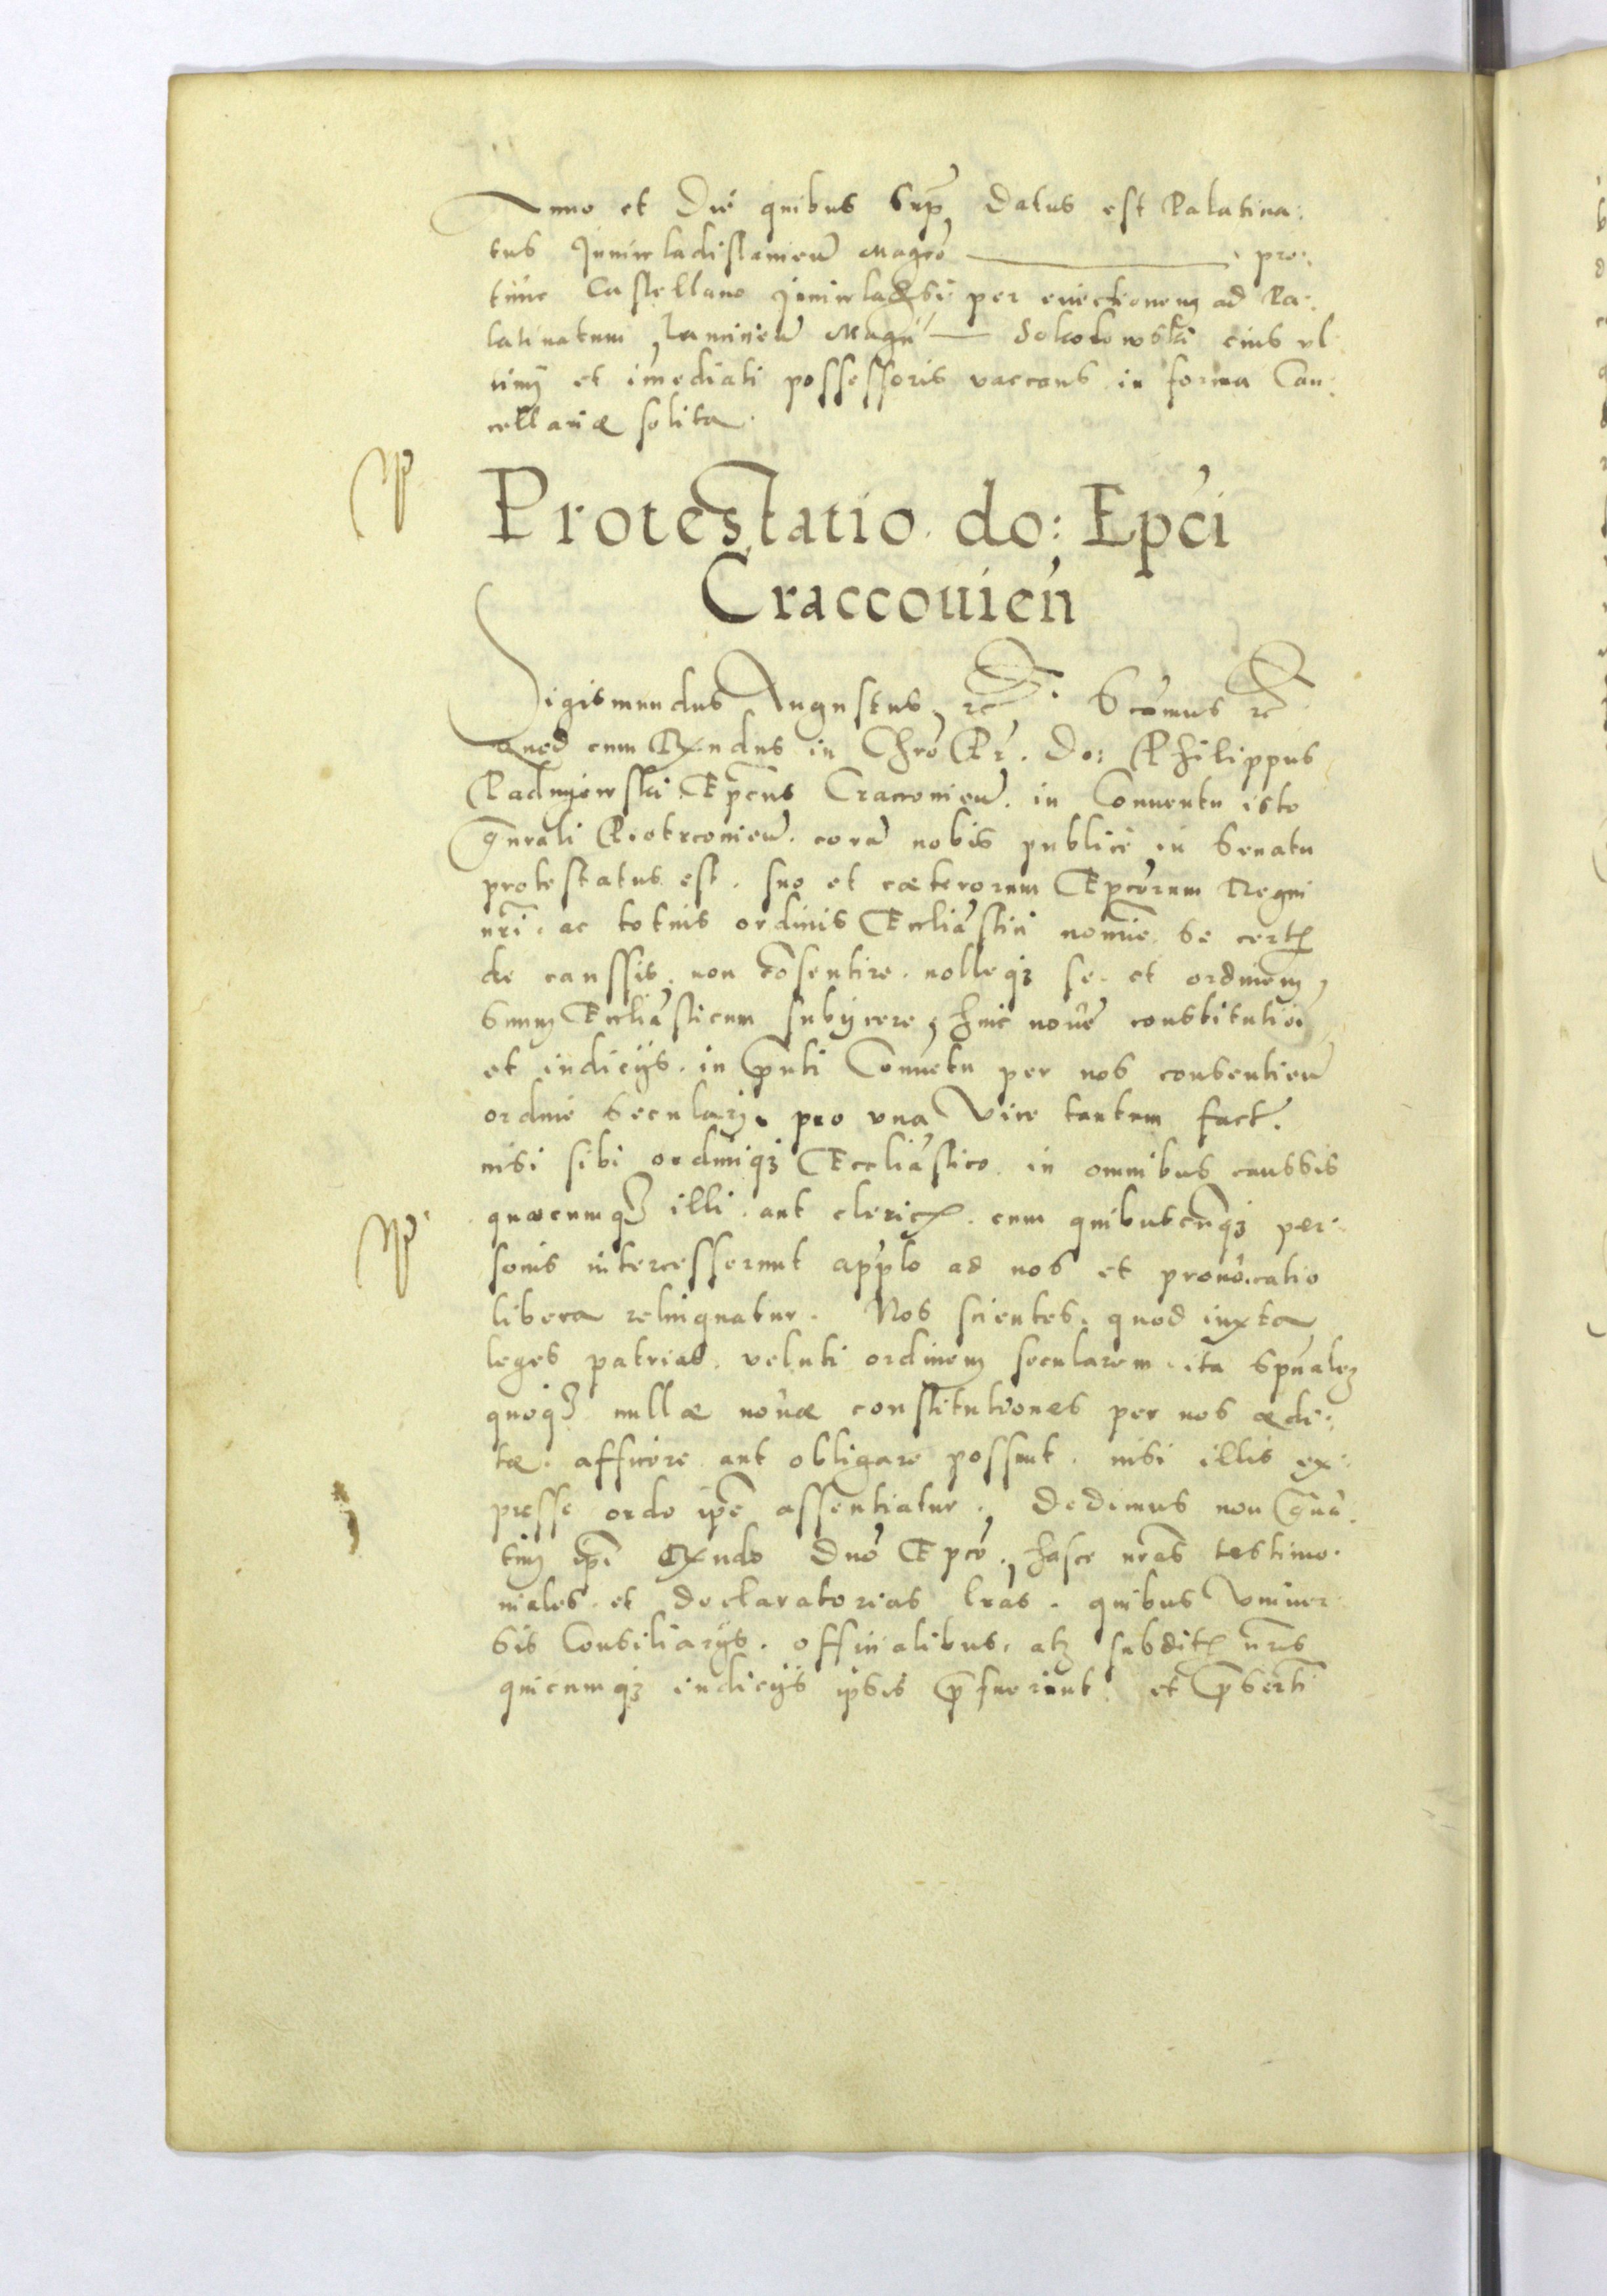 Anno et Die quibus Sup, datus est Palatina:
tus Juniwladislauien Magco ———— pro:
tunc Castellano per euectionem ad Pa:
latinatum Lancicien Magci — Sokolowski eius vl
timi et imediati possessoris vaccans in forma Can:
cellariæ solita.
Protestatio do: Epci
Craccouien
Sigismundus Augustus, rc. Scimus rc
Quod cum Rxndus in Chro Pr. Do: Philippus
Padnyewski Epcus Cracouien. in Conuentu isto
gnrali Piotrcouien. coram nobis publice in Senatu
protestatus est. suo et cæterorum Epcorum Regni
nri. ac totius ordinis Eccliastici nomine. Se certis
de caussis, non cosentire. nolleqz se. et ordinem,
Suum Eccliasticum subijcere, huic nouæ constitutioi
et iudicijs. in pnti Conuetu per nos consentien
ordine Seculari. pro vna Vice tantum fact.
nisi sibi ordiniqz Eccliastico in omnibus caussis
quæcumqz illi. aut clericis. cum quibuscuqz per:
sonis intercesserint applo ad nos et prouocatio
libera relinquatur. Nos scientes. quod iuxta
leges patrias. veluti ordinem secularem. ita Spualem
quoqz nullæ nouæ constitutiones per nos ædi:
tæ. afficere aut obligare possunt. nisi illis ex:
presse ordo ipe assentiatur., Dedimus non gra
tim ipi Rxndo Dno Epco., hasce nras testimo:
niales. et declaratorias lras. quibus Vniuer
sis Consiliarijs. officialibus. atqz subditis nris
quicumqz iudicijs ipsis pfuerint. et pserti